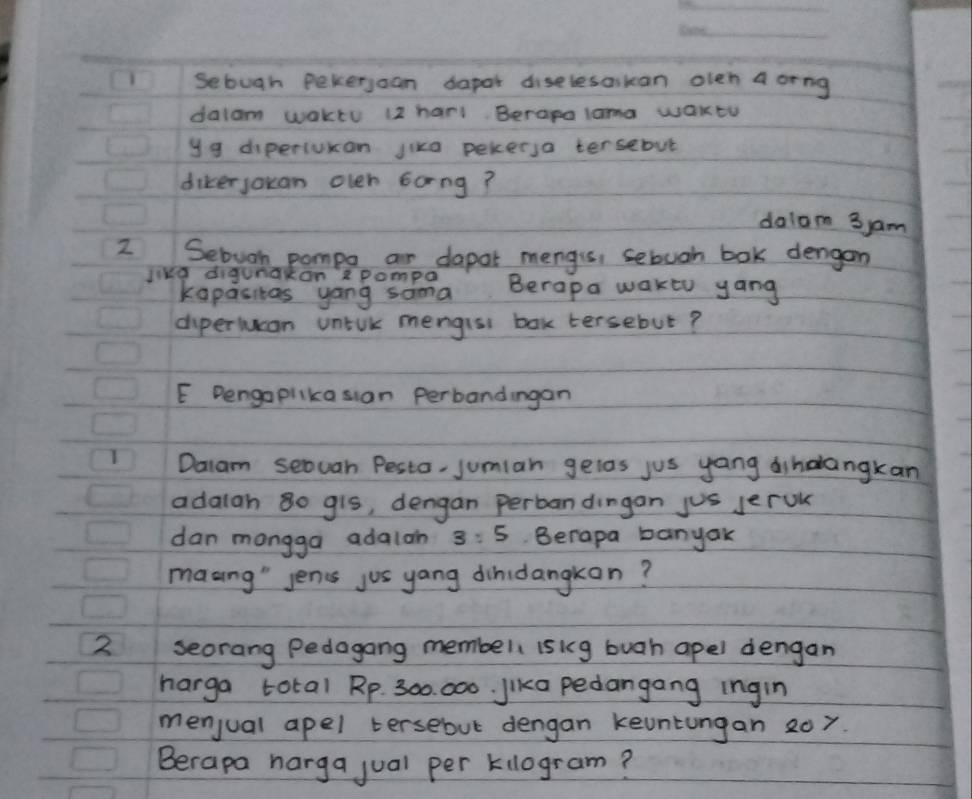 1 Sebuah Pekerjaan dapat diselesaikan oleh 4 orng
dalam waktu 12 hari. Berapa lama waktu
yg diperlukan jika pekerja tersebut
dikerjakan oleh 6 orng?
dalam 3 jam
2 Sebuah pompa air dapat mengisi sebuah bak dengan
jika digunakan 2 pompa
kapasitas yang sama. Berapa waktu yang
diperlukan untuk mengisi bak tersebut?
E Pengaplikasian Perbandingan
1 Dalam sebuah Pesta. jumlah gelas jus yang dihidangkan
adalah 80 gls, dengan perbandingan jus jeruk
dan mangga adalah 3 : 5. Berapa banyak
masing" jenis jus yang dihidangkan?
2 seorang Pedagang membeli 15 kg buah apel dengan
harga total Rp. 300.000. jika pedangang ingin
menjual apel tersebut dengan keuntungan 20%.
Berapa harga jual per kilogram?